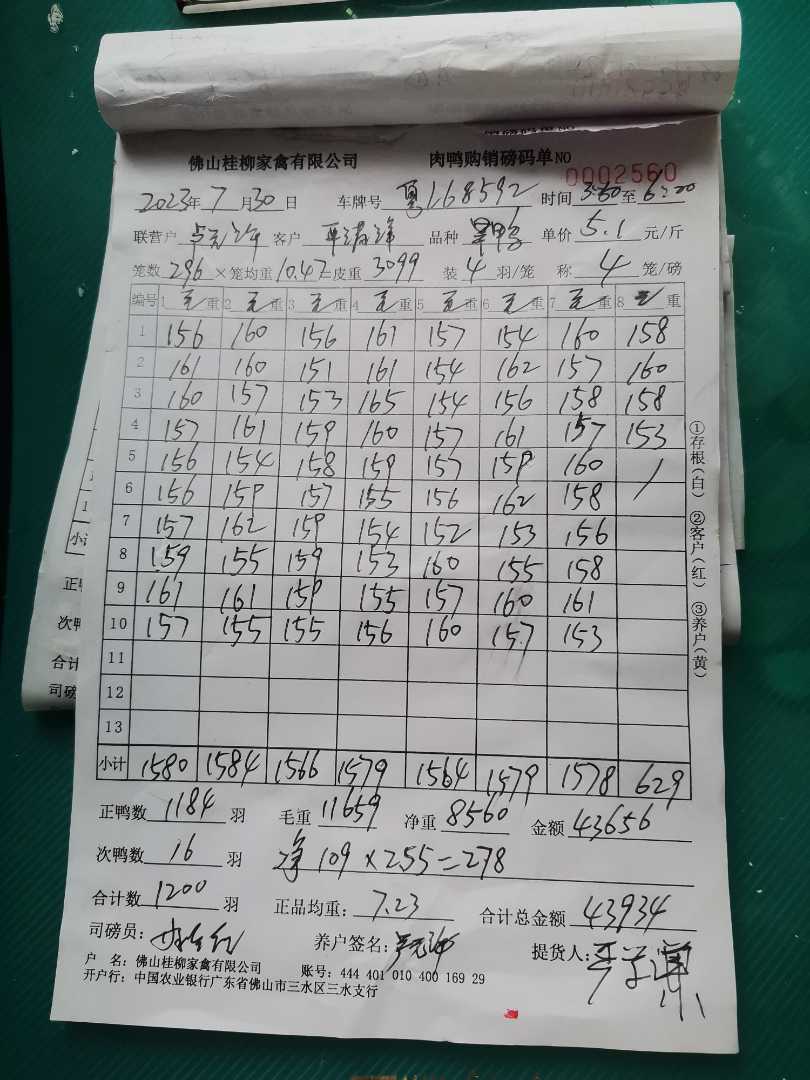 佛山桂柳家禽有限公司 肉鸭购销磅码单NO 0002560
2023年 7 月 30 日 车牌号 L68592 时间 3:50 至 6:20
联营户 客户 品种 单价 5.1 元/斤
笼数 296 ×笼均重 10.47 =皮重 3099 装 4 羽/笼 称 4 笼/磅
编号 1 重 2 重 3 重 4 重 5 重 6 重 7 重 8 重
1 156 160 156 161 157 154 160 158
2 161 160 151 161 154 162 157 160
3 160 157 153 165 154 156 158 158
4 157 161 159 160 157 161 157 153
5 156 154 158 159 157 159 160
6 156 159 157 155 156 162 158
7 157 162 159 154 152 153 156
8 159 155 159 153 160 155 158
9 161 161 159 155 157 160 161
10 157 155 155 156 160 157 153
11
12
13
小计 1580 1584 1566 1579 1564 1579 1578 629
正鸭数 1184 羽 毛重 11659 净重 8560 金额 43656
次鸭数 16 羽 净 109 × 2.55 = 278
合计数 1200 羽 正品均重: 7.23 合计总金额 43934
司磅员: 养户签名: 提货人:
户 名: 佛山桂柳家禽有限公司 账号: 444 401 010 400 169 29
开户行: 中国农业银行广东省佛山市三水区三水支行
①存根(白) ②客户(红) ③养户(黄)
小计
正鸭
次鸭
合计
司磅